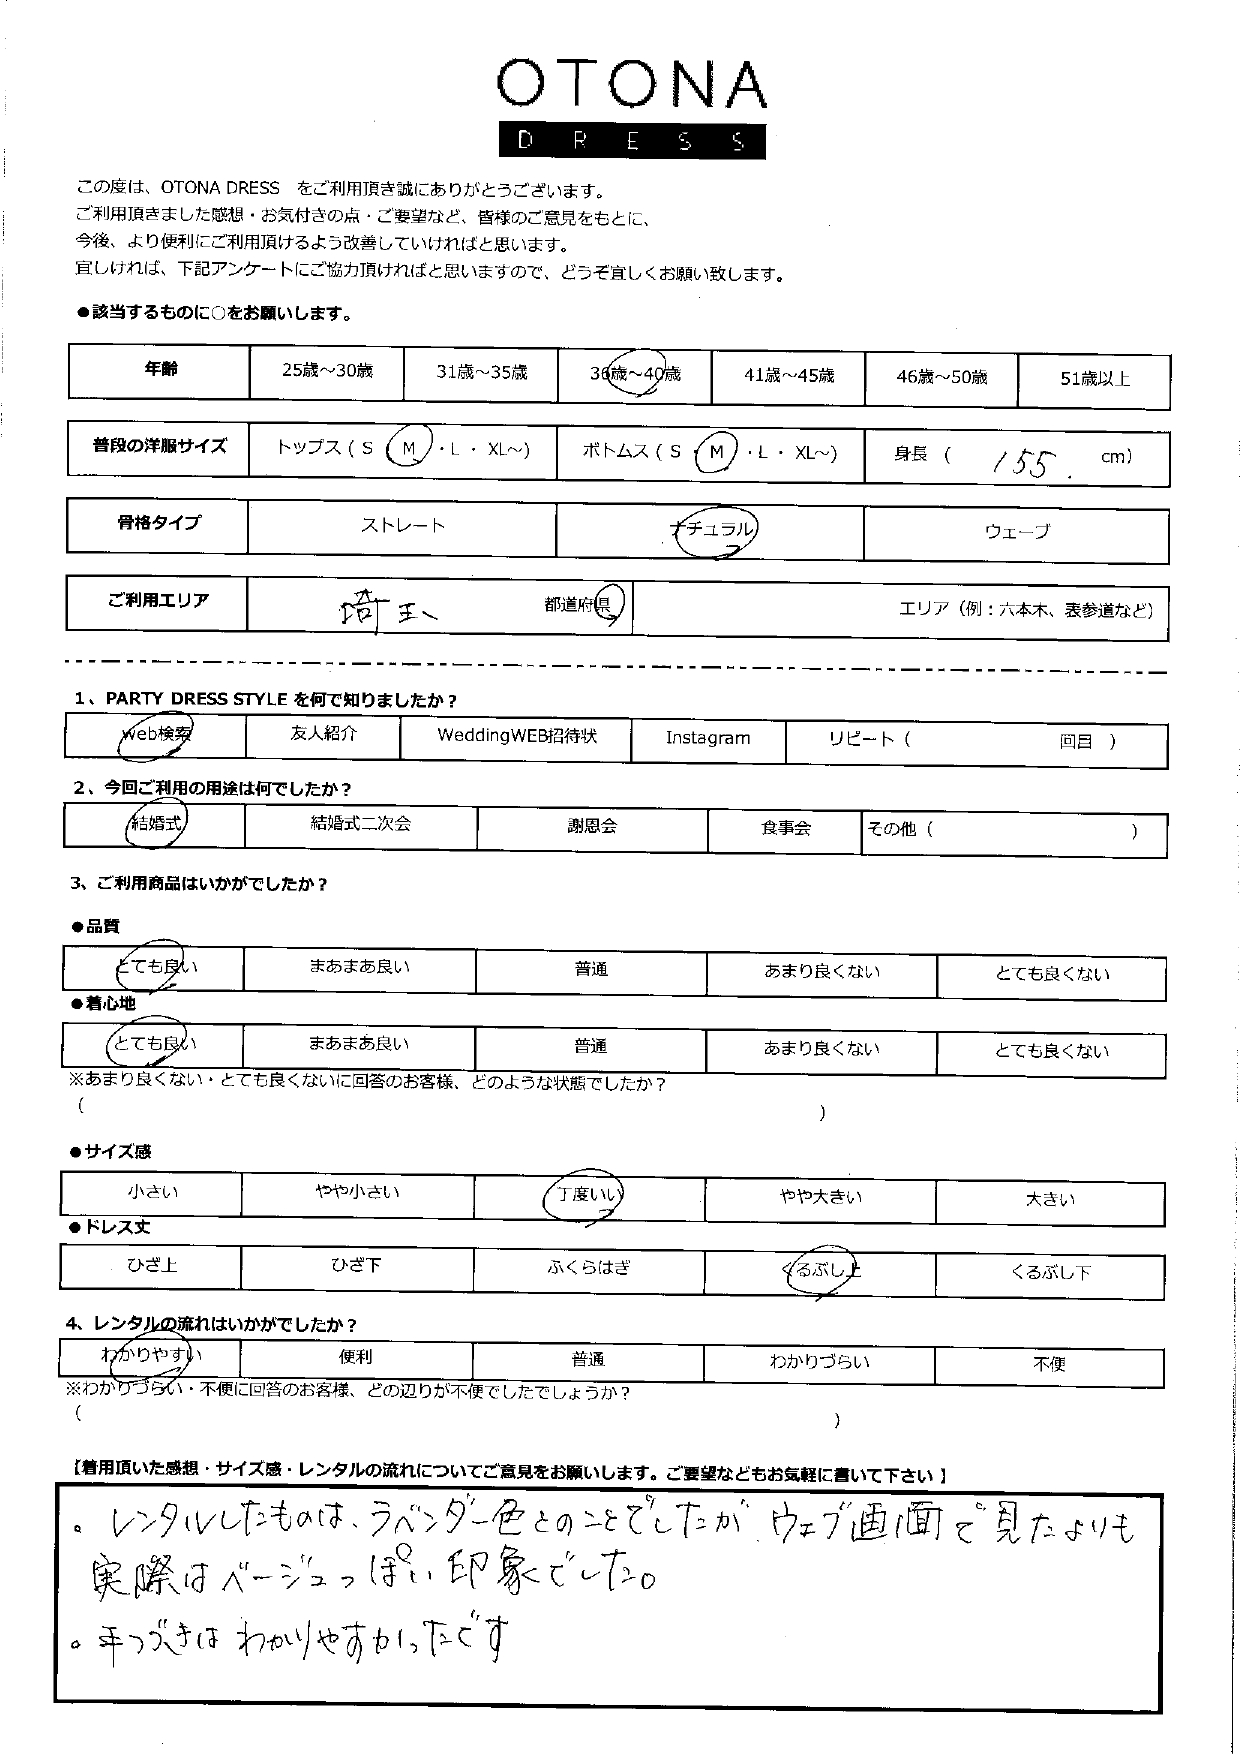 OTONA
DRESS
この度は、OTONA DRESS　をご利用頂き誠にありがとうございます。
ご利用頂きました感想・お気付きの点・ご要望など、皆様のご意見をもとに、
今後、より便利にご利用頂けるよう改善していければと思います。
宜しければ、下記アンケートにご協力頂ければと思いますので、どうぞ宜しくお願い致します。
●該当するものに○をお願いします。
年齢 25歳～30歳 31歳～35歳 36歳～40歳 41歳～45歳 46歳～50歳 51歳以上
普段の洋服サイズ トップス（ S ・ M ・ L ・ XL～） ボトムス（ S ・ M ・ L ・ XL～） 身長（ 155. cm）
骨格タイプ ストレート ナチュラル ウェーブ
ご利用エリア 埼玉 都道府県 エリア（例：六本木、表参道など）
1、PARTY DRESS STYLE を何で知りましたか？
Web検索 友人紹介 WeddingWEB招待状 Instagram リピート（ 回目 ）
2、今回ご利用の用途は何でしたか？
結婚式 結婚式二次会 謝恩会 食事会 その他（ ）
3、ご利用商品はいかがでしたか？
●品質
とても良い まあまあ良い 普通 あまり良くない とても良くない
●着心地
とても良い まあまあ良い 普通 あまり良くない とても良くない
※あまり良くない・とても良くないに回答のお客様、どのような状態でしたか？
（ ）
●サイズ感
小さい やや小さい 丁度いい やや大きい 大きい
●ドレス丈
ひざ上 ひざ下 ふくらはぎ くるぶし上 くるぶし下
4、レンタルの流れはいかがでしたか？
わかりやすい 便利 普通 わかりづらい 不便
※わかりづらい・不便に回答のお客様、どの辺りが不便でしたでしょうか？
（ ）
【着用頂いた感想・サイズ感・レンタルの流れについてご意見をお願いします。ご要望などもお気軽に書いて下さい】
。レンタルしたものは、ラベンダー色とのことでしたが ウェブ画面で見たよりも
実際はベージュっぽい印象でした。
。手つづきは わかりやすかったです